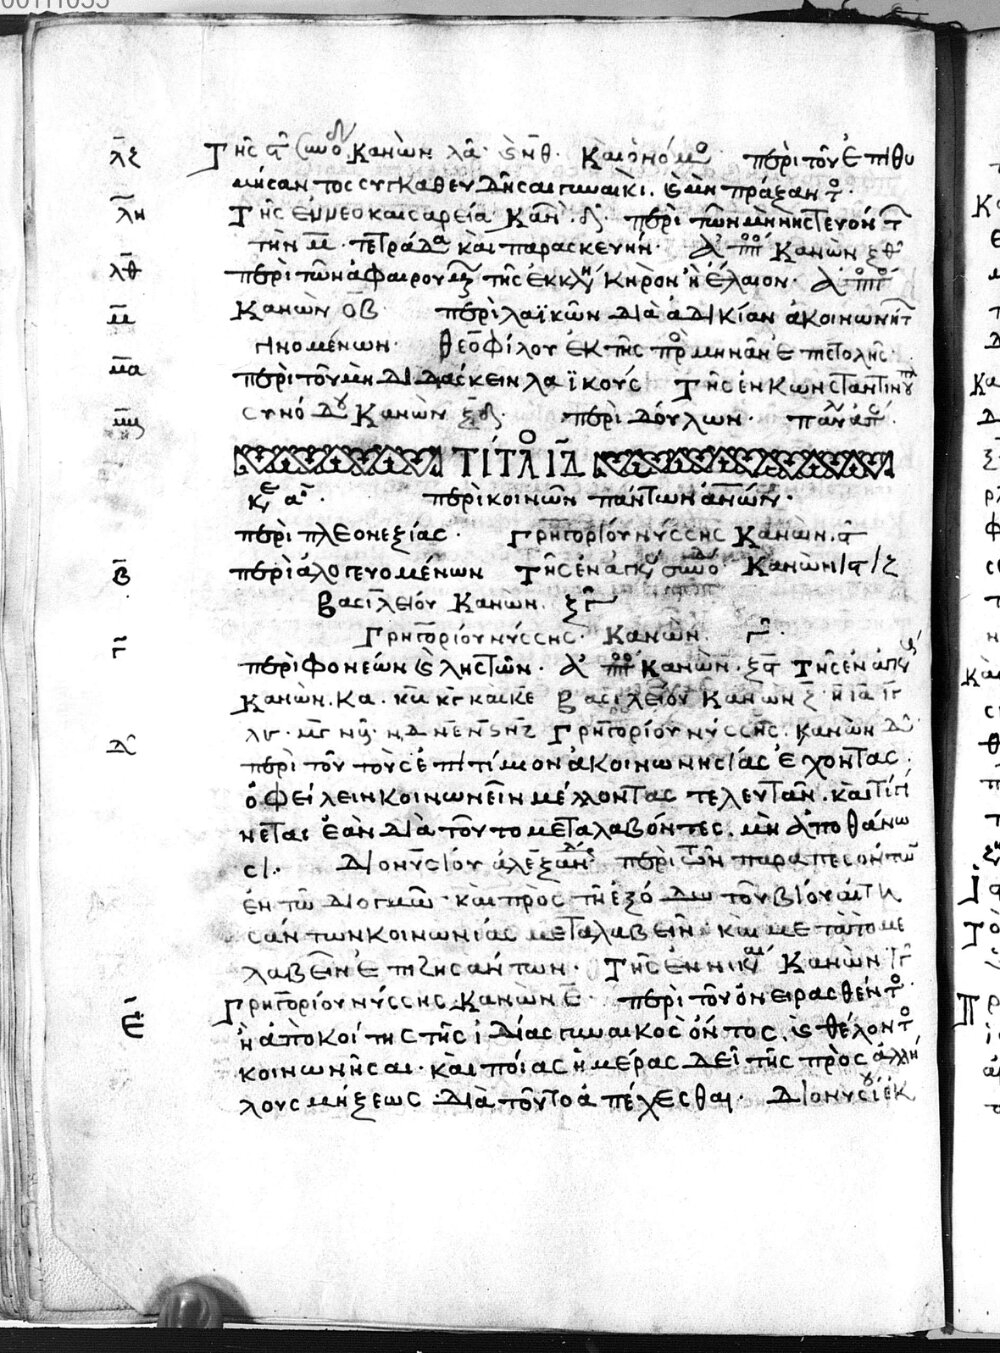 λζ Της ϛ συνοδ Κανὼν λα. ϟ νθ. Καὶ ὁ νόμο περὶ τοῦ ἐπιθυ
μήσαντος συγκαθευδῆσαι γυναικὶ. ϟ μὴ πράξαντο.
λη Της ἐν νεοκαισαρεία Καν. δ. περὶ τῶν μὴ νηστευόντ
την μ. τετράδα καὶ παρασκευήν. Ἀπο Κανὼν ξθ
λθ περὶ τῶν ἀφαιρουμ τῆς ἐκκλη κηρον ἢ ἔλαιον. Ἀπο
Κανὼν οβ.
μ περὶ λαϊκῶν διὰ ἀδικίαν ἀκοινωνητ
γινομένων. θεοφίλου ἐκ τῆς πρ μηνᾶν ἐπιστολῆς.
μα περὶ τοῦ μὴ διδάσκειν λαϊκούς Τῆς ἐν κωνσταντινουπλ
συνόδου Κανὼν ξδ.
μβ περὶ δούλων.
ΤΙΤΛΟ ΙΔ
κε α. περὶ κοινῶν πάντων ἀνων.
περὶ πλεονεξίας. γρηγορίου νύσσης Κανὼν. ϛ
β περὶ ἀλογευομένων Τῆς ἐν ἀγκυ συνοδ Κανὼν ιϛ ιζ
βασιλείου Κανὼν. ξγ
γρηγορίου νύσσης. Κανὼν. γ.
γ περὶ φονέων ϟ ληστῶν. Ἀπο Κανὼν. ξϛ Τῆς ἐν ἀγκυ
Κανὼν. κα. κβ κγ καὶ κε βασιλείου Κανὼν ζ. η ια ιγ
λγ. μγ νβ. νδ νε νϛ νζ γρηγορίου νύσσης. Κανὼν δ
δ περὶ τοῦ τοὺς ἐπιτίμιον ἀκοινωνησίας ἔχοντας.
ὀφείλειν κοινωνεῖν μέλλοντας τελευτᾶν. καὶ τί γί
νεται ἐὰν διὰ τοῦτο μεταλαβόντες. μὴ ἀποθάνω
σι. διονυσίου ἀλεξανδ περὶ τῶν παραπεσόντων
ἐν τῶ διογμῶ. καὶ πρὸς τῆ ἐξόδω τοῦ βίου αἰτη
σάντων κοινωνίας μεταλαβεῖν. καὶ μετὰ τὸ με
λαβεῖν ἐπιζησάντων. Τῆς ἐν νικαι Κανὼν ιγ
γρηγορίου νύσσης Κανὼν ε.
ε περὶ τοῦ ὀνειρασθέντο
ἢ ἀπὸ κοίτης τῆς ἰδίας γυναικὸς ὄντος. ϟ θέλοντο
κοινωνῆσαι. καὶ ποίας ἡμέρας δεῖ τῆς πρὸς ἀλλή
λους μήξεως διὰ τοῦτο ἀπέχεσθαι. διονυσίου ἐκ